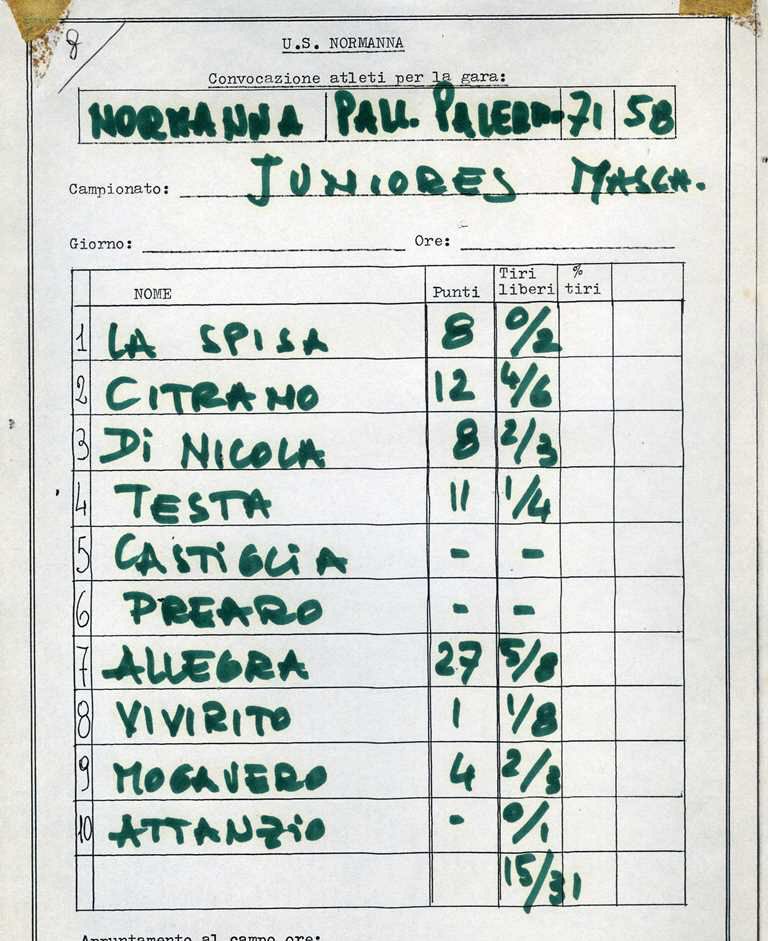 8
U.S. NORMANNA
Convocazione atleti per la gara:
NORMANNA PALL. PALERM. 71 58
Campionato: JUNIORES MASCH.
Giorno: Ore:
NOME Punti Tiri liberi % tiri
1 LA SPISA 8 0/2
2 CITRANO 12 4/6
3 Di NICOLA 8 2/3
4 TESTA 11 1/4
5 CASTiGLiA - -
6 PREARO - -
7 ALLEGRA 27 5/8
8 ViViRiTO 1 1/8
9 MOGAVERO 4 2/3
10 ATTANZiO - 0/1
15/31
Appuntamento al campo ore: